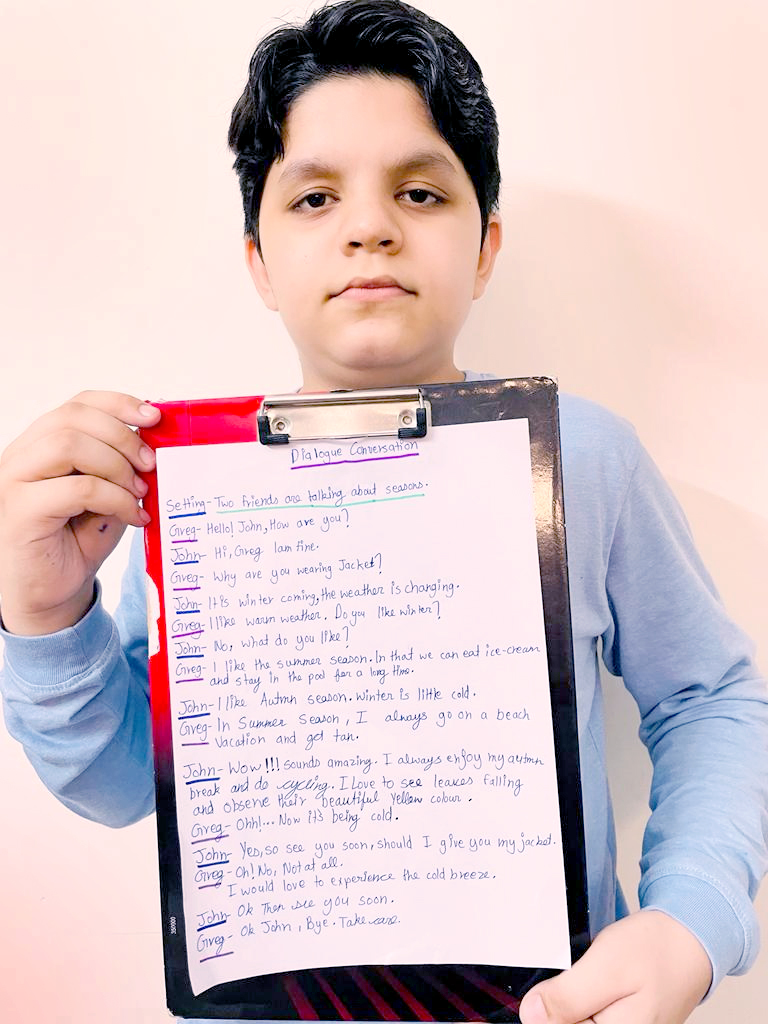 Dialogue Conversation
Setting- Two friends are talking about seasons.
Greg- Hello! John, How are you?
John- Hi, Greg I am fine.
Greg- Why are you wearing Jacket?
John- It is winter coming, the weather is changing.
Greg- I like warm weather. Do you like winter?
John- No, what do you like?
Greg- I like the summer season. In that we can eat ice-cream
and stay in the pool for a long time.
John- I like Autmn season. Winter is little cold.
Greg- In Summer Season, I always go on a beach
Vacation and get tan.
John- Wow!!! sounds amazing. I always enjoy my autmn
break and do cycling. I Love to see leaves falling
and observe their beautiful Yellow colour.
Greg- Ohh!... Now it's being cold.
John- Yes, so see you soon, should I give you my jacket.
Greg- Oh! No, Not at all.
I would love to experience the cold breeze.
John- Ok Then see you soon.
Greg- Ok John, Bye. Take care.